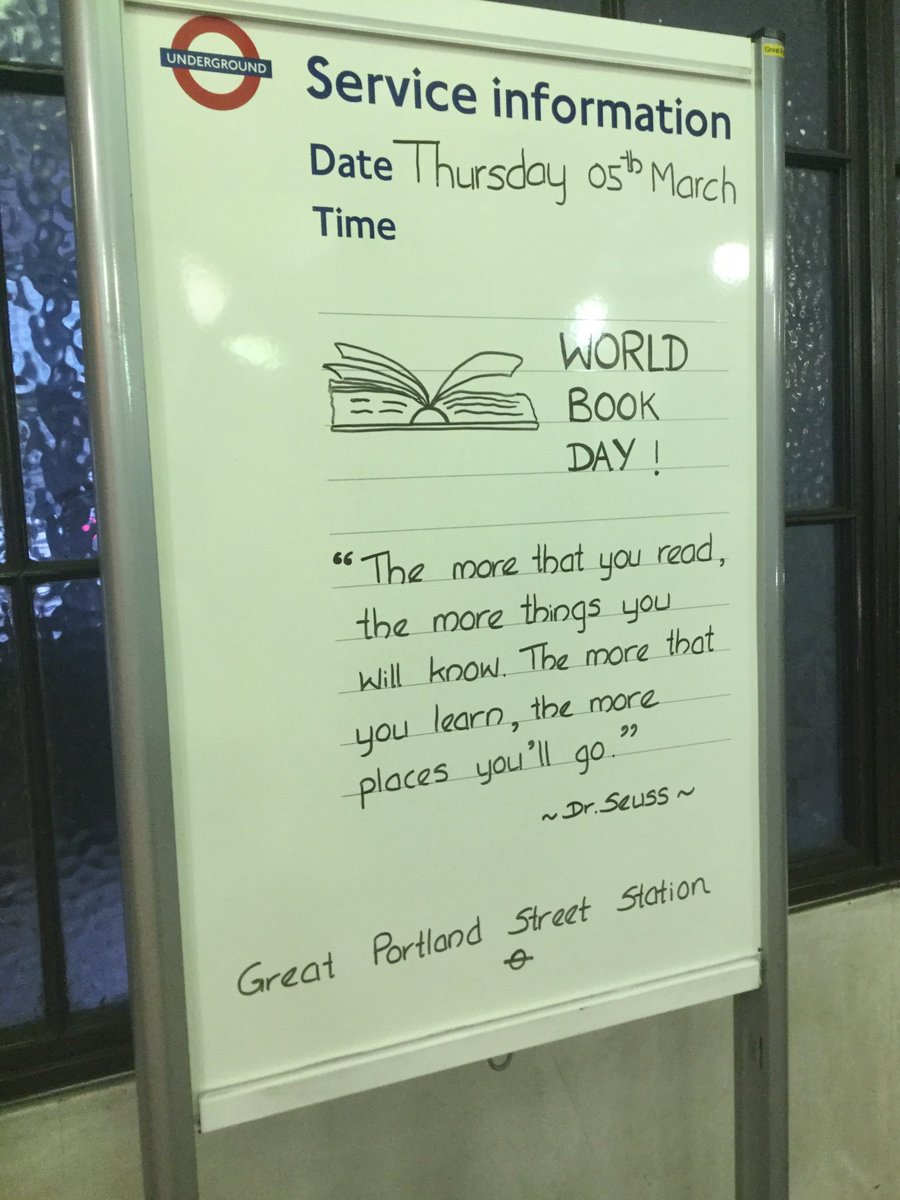 UNDERGROUND
Service information
Date Thursday 05th March
Time
WORLD
BOOK
DAY !
“ The more that you read,
the more things you
will know. The more that
you learn, the more
places you'll go.”
~ Dr. Seuss ~
Great Portland Street Station